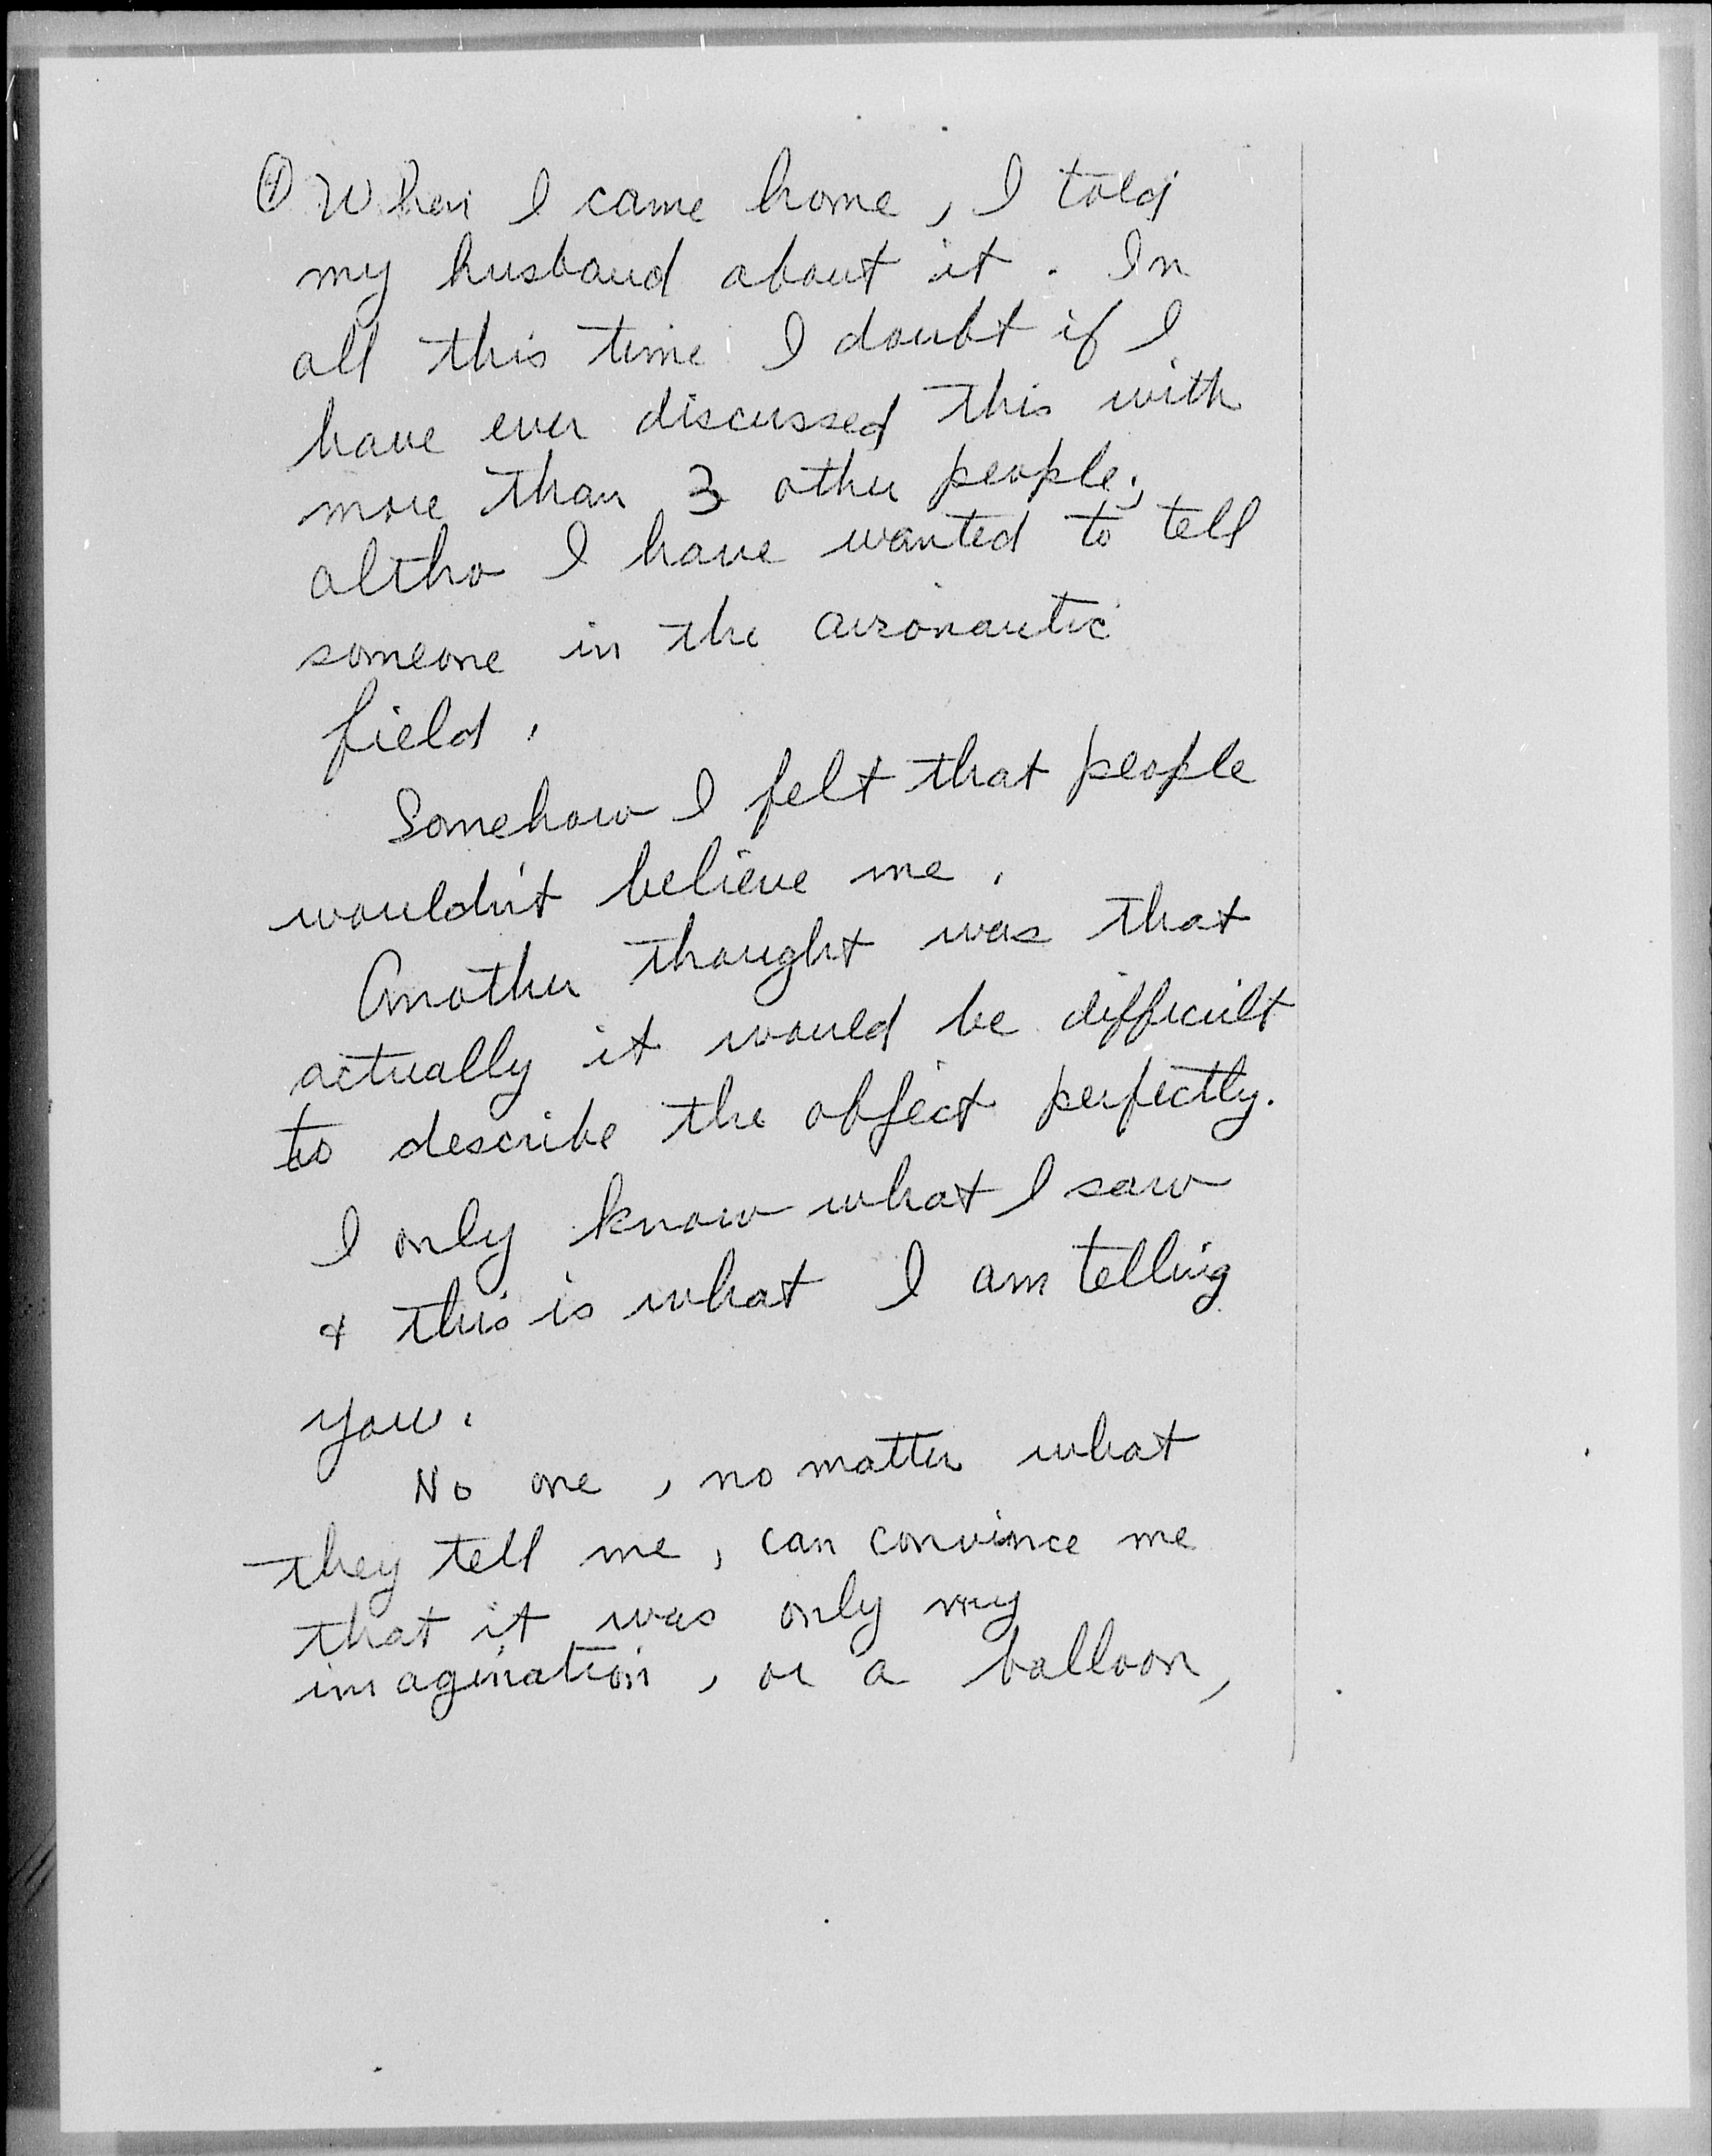 ④ When I came home, I told
my husband about it. In
all this time I doubt if I
have ever discussed this with
more than 3 other people;
altho I have wanted to tell
someone in the aeronautic
field.
Somehow I felt that people
wouldn't believe me.
Another thought was that
actually it would be difficult
to describe the object perfectly.
I only know what I saw
& this is what I am telling
you.
No one, no matter what
they tell me, can convince me
that it was only my
imagination, or a balloon,